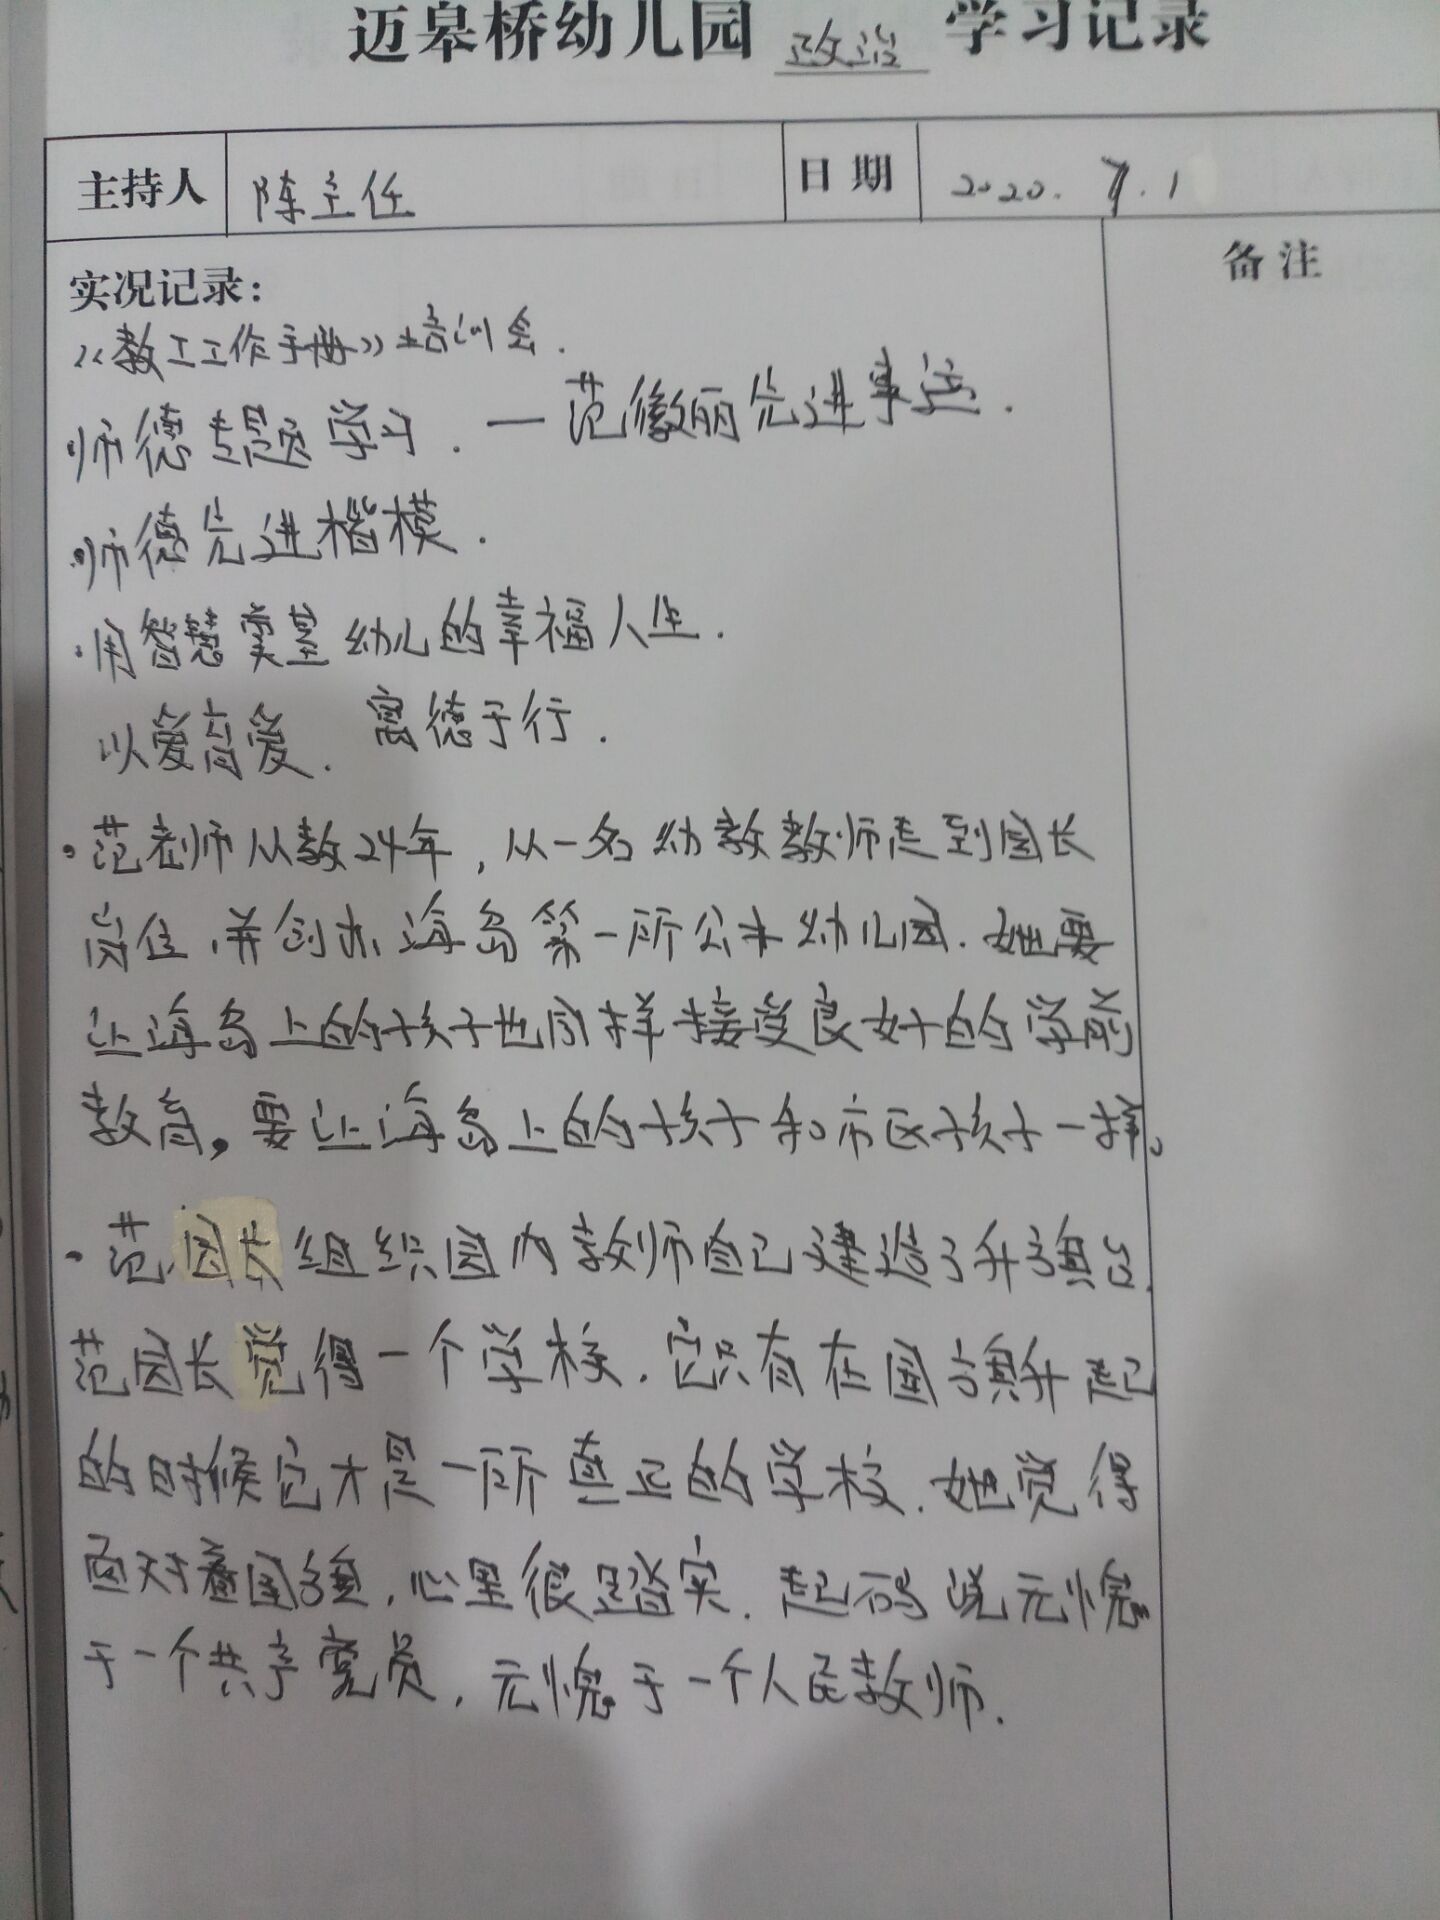 迈皋桥幼儿园 政治 学习记录
主持人 陈主任 日期 2020.7.1
备注
实况记录:
《教工工作手册》培训会.
师德专题学习.—范徽丽先进事迹.
·师德先进楷模.
·用智慧奠基幼儿的幸福人生.
以爱育爱. 寓德于行.
·范老师从教24年,从一名幼教教师走到园长
岗位,并创办海岛第一所公办幼儿园.她要
让海岛上的孩子也同样接受良好的学前
教育。要让海岛上的孩子和市区孩子一样。
·范园长组织园内教师自己建造了升旗台.
范园长觉得一个学校.它只有在国旗升起
的时候它才是一所真正的学校.她觉得
面对着国旗,心里很踏实.起码说无愧
于一个共产党员,无愧于一个人民教师.